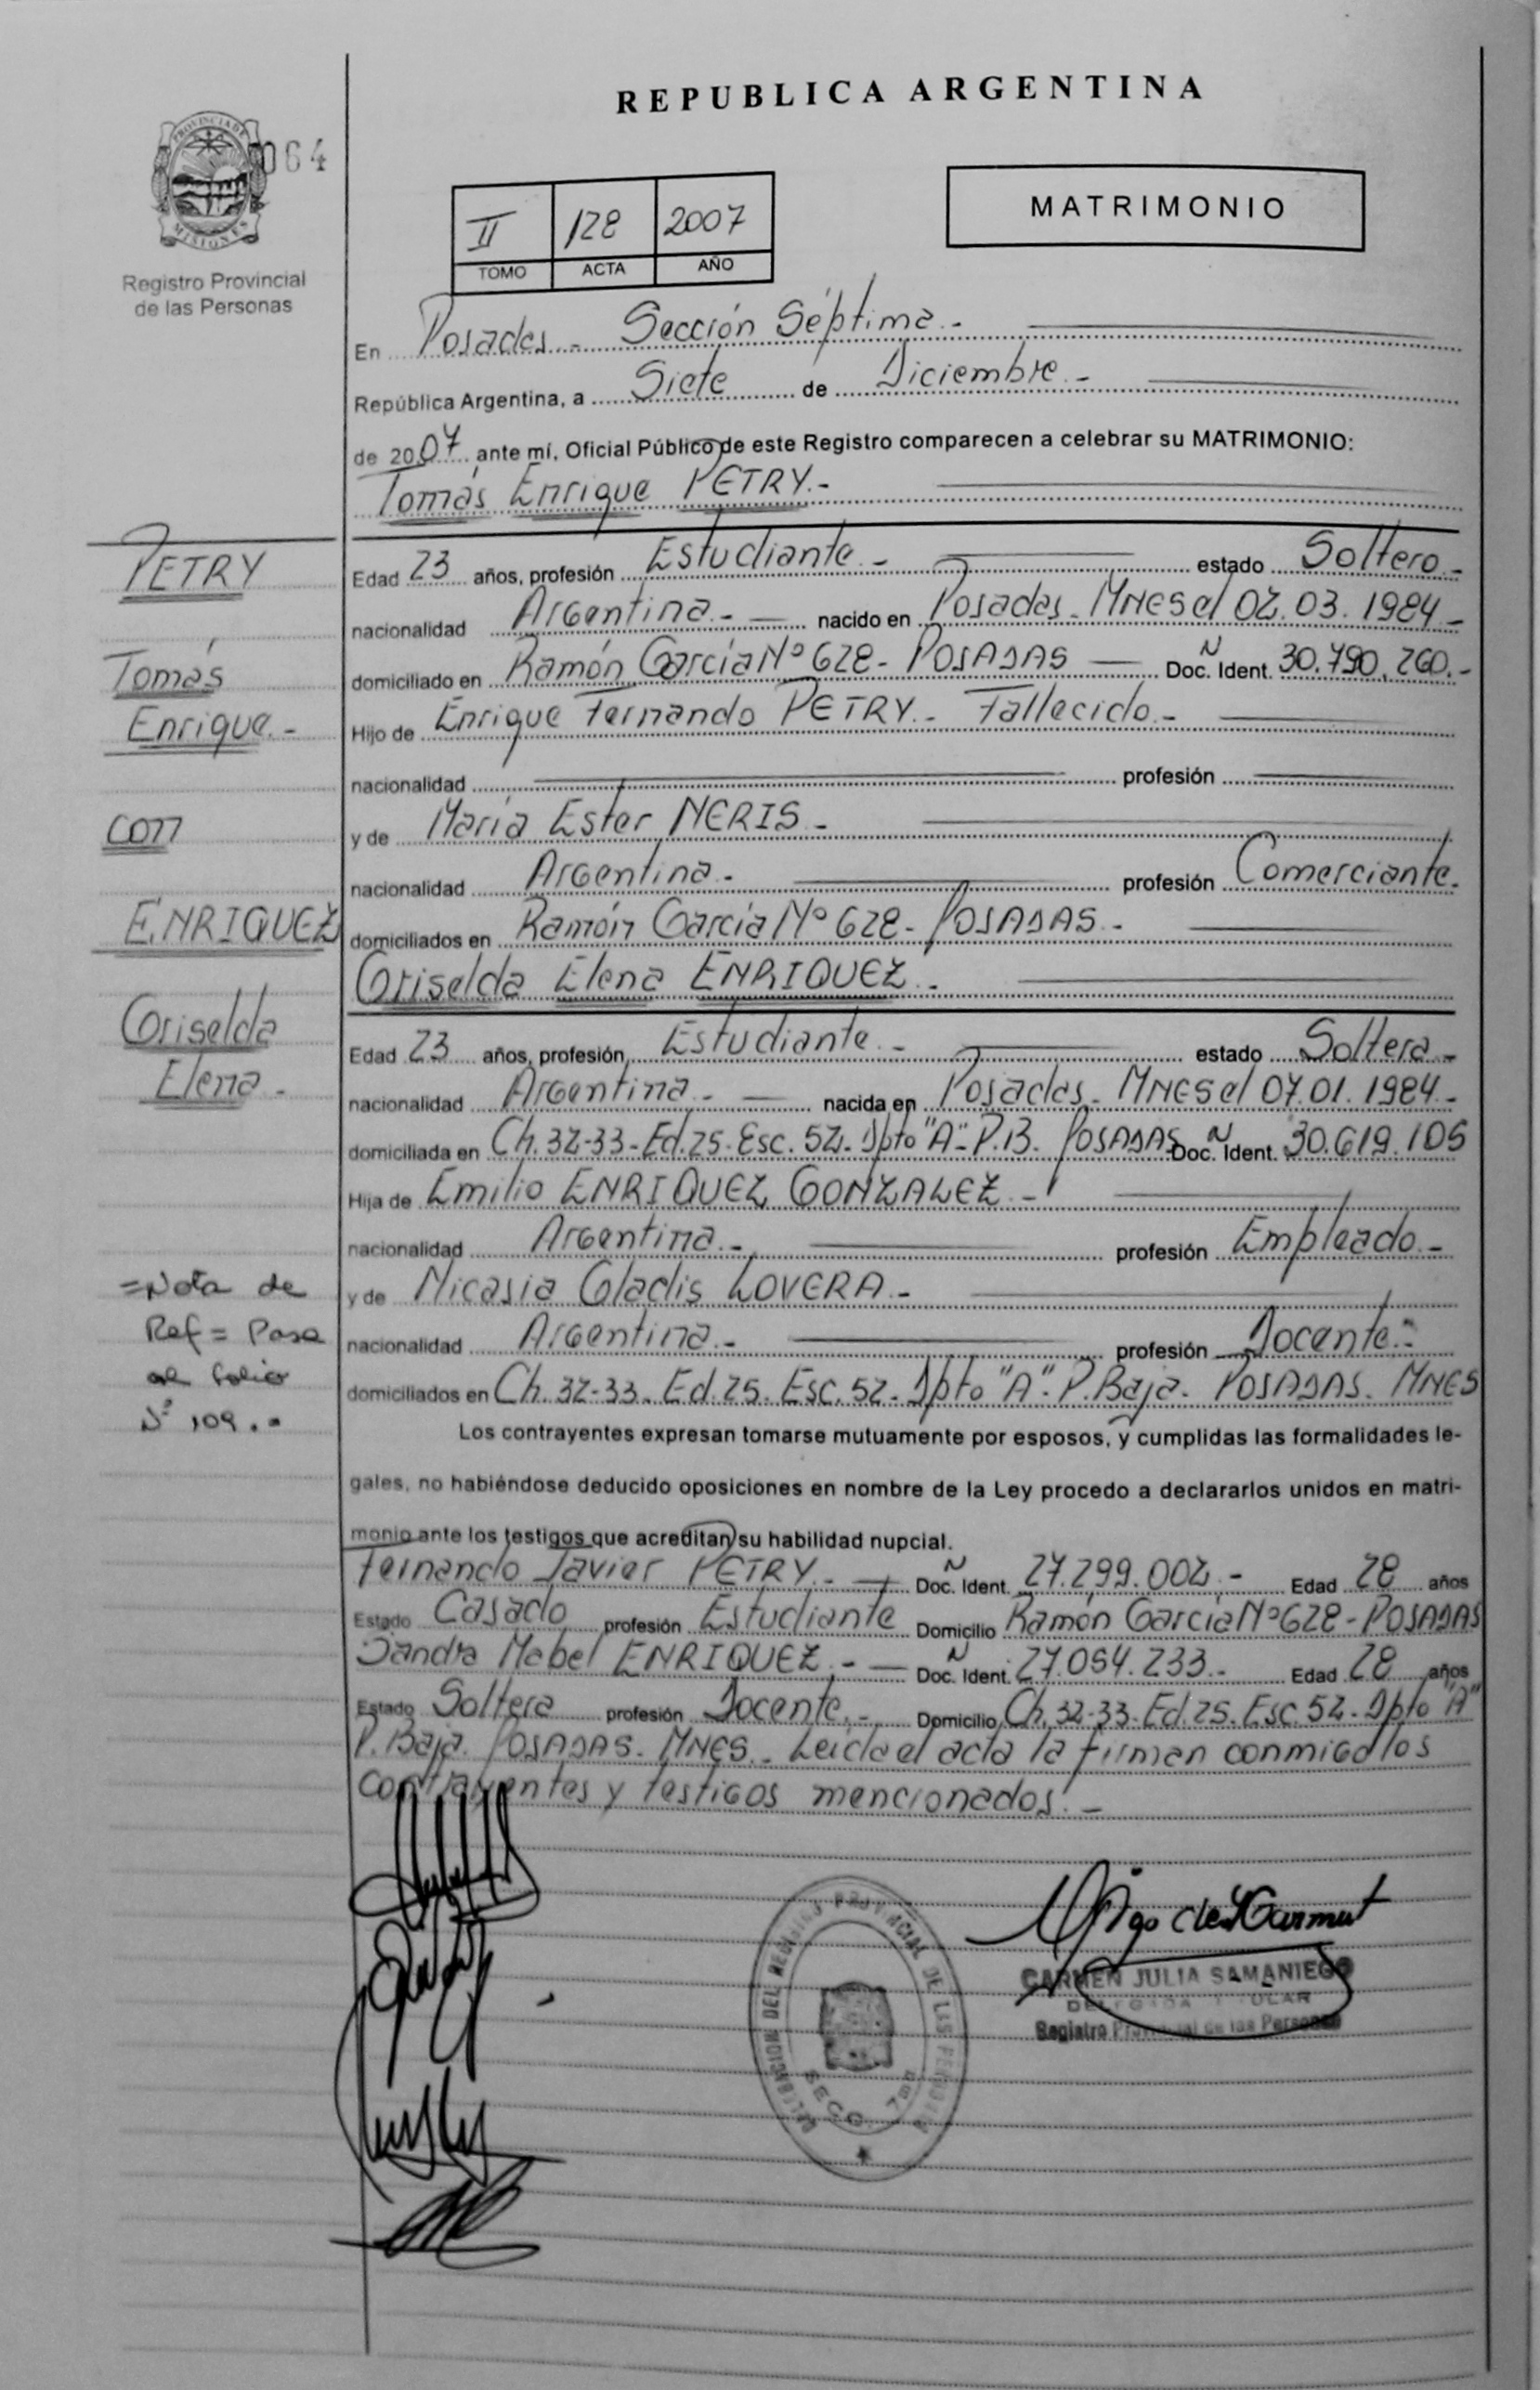 REPUBLICA ARGENTINA
PROVINCIA DE
MISIONES
064
Registro Provincial
de las Personas
II 128 2007
TOMO ACTA AÑO
MATRIMONIO
En Posadas - Sección Séptima.-
República Argentina, a Siete de Diciembre.-
de 2007 ante mí, Oficial Público de este Registro comparecen a celebrar su MATRIMONIO:
Tomás Enrique PETRY.-
PETRY
Tomás
Enrique.-
con
ENRIQUEZ
Griselda
Elena -
=Nota de
Ref = Pase
al folio
Nº 109.=
Edad 23 años, profesión Estudiante.- estado Soltero.-
nacionalidad Argentina.- nacido en Posadas - MNES el 02.03.1984.-
domiciliado en Ramón García Nº 628 - POSADAS Doc. Ident. N 30.790.260.-
Hijo de Enrique Fernando PETRY.- Fallecido.-
nacionalidad profesión
y de María Ester NERIS.-
nacionalidad Argentina.- profesión Comerciante.
domiciliados en Ramón García Nº 628 - POSADAS.-
Griselda Elena ENRIQUEZ.-
Edad 23 años, profesión Estudiante.- estado Soltera.-
nacionalidad Argentina.- nacida en Posadas - MNES el 07.01.1984.-
domiciliada en Ch. 32-33 - Ed. 25. Esc. 52. Dpto "A" - P.B. POSADAS Doc. Ident. N 30.619.105
Hija de Emilio ENRIQUEZ GONZALEZ.-
nacionalidad Argentina.- profesión Empleado.-
y de Nicasia Gladis LOVERA.-
nacionalidad Argentina.- profesión Docente.-
domiciliados en Ch. 32-33. Ed. 25. Esc. 52. Dpto "A". P. Baja. POSADAS. MNES
Los contrayentes expresan tomarse mutuamente por esposos, y cumplidas las formalidades le-
gales, no habiéndose deducido oposiciones en nombre de la Ley procedo a declararlos unidos en matri-
monio ante los testigos que acreditan su habilidad nupcial.
Fernando Javier PETRY.- Doc. Ident. N 27.299.002.- Edad 28 años
Estado Casado profesión Estudiante Domicilio Ramón García Nº 628 - POSADAS
Sandra Mabel ENRIQUEZ.- Doc. Ident. N 27.054.233.- Edad 28 años
Estado Soltera profesión Docente.- Domicilio Ch. 32-33. Ed. 25. Esc. 52. Dpto "A"
P. Baja. POSADAS. MNES. Leída el acta la firman conmigo los
contrayentes y testigos mencionados.-
DELEGACION DEL REGISTRO PROVINCIAL DE LAS PERSONAS
SECC. 7ma
CARMEN JULIA SAMANIEGO
DELEGADA TITULAR
Registro Provincial de las Personas